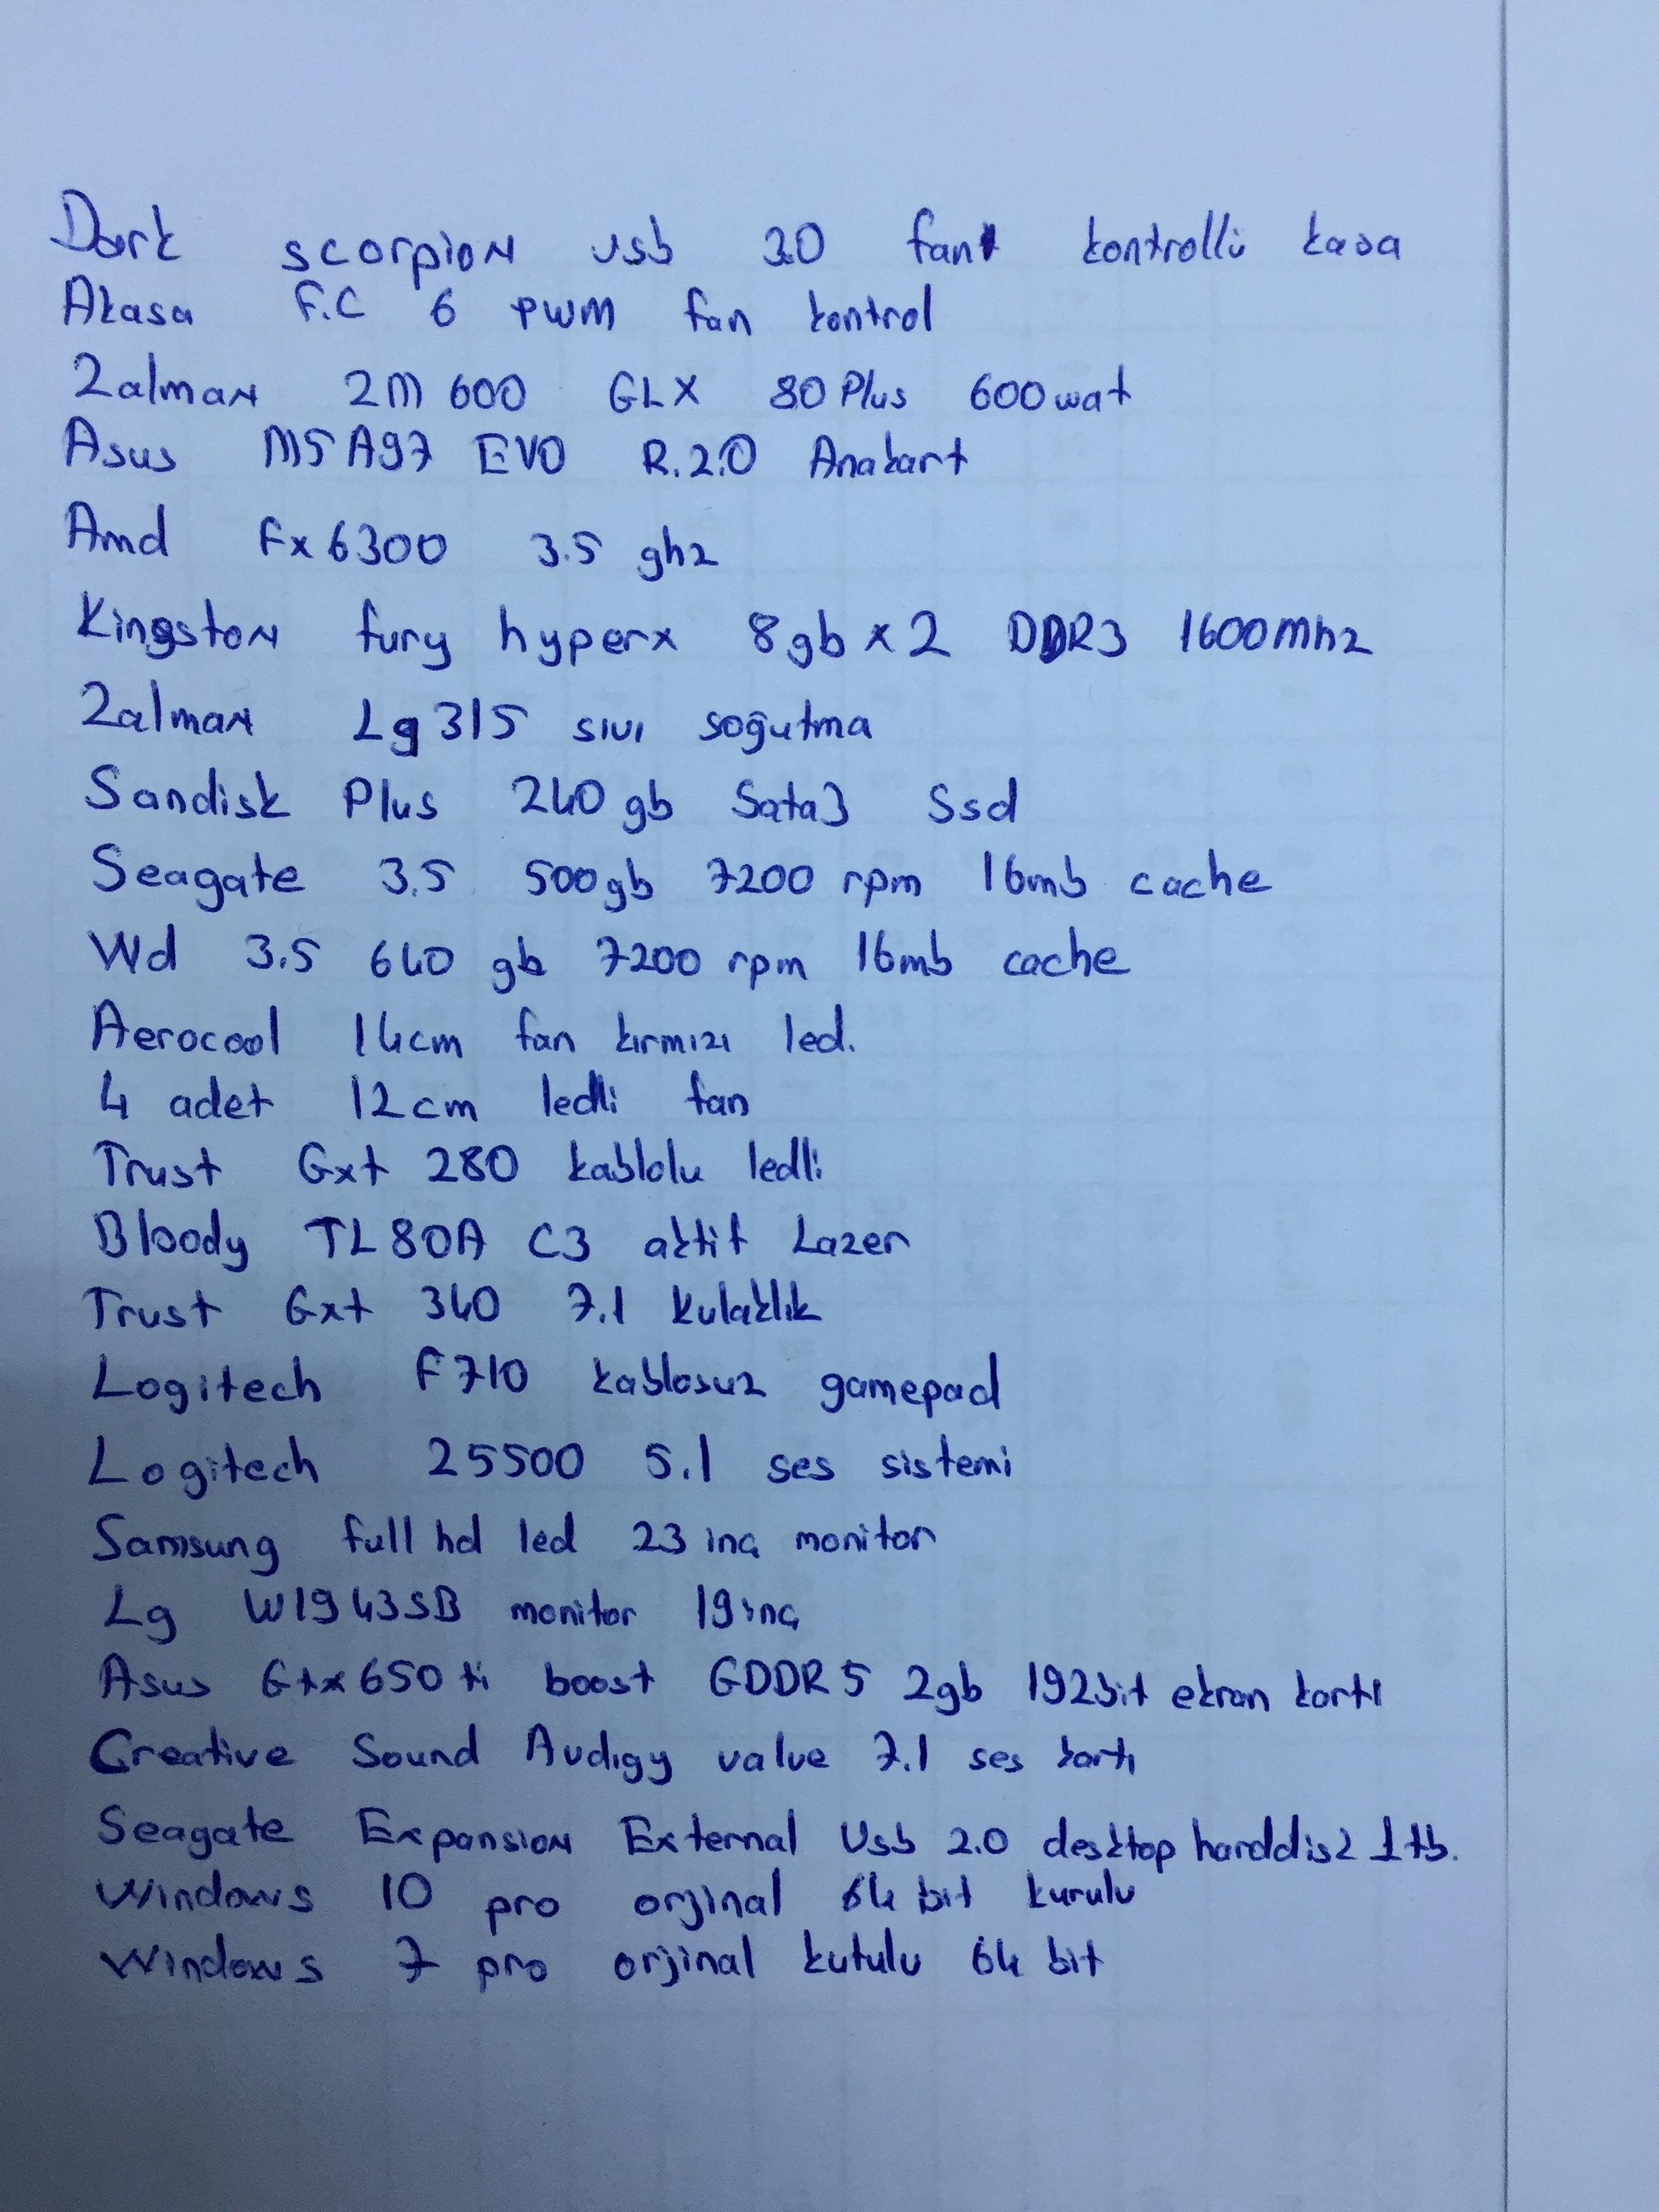 Dark scorpion usb 3.0 fan kontrollü kasa
Akasa F.C 6 PWM fan kontrol
Zalman ZM 600 GLX 80 Plus 600 wat
Asus M5A97 EVO R.2.0 Anakart
Amd Fx 6300 3.5 ghz
Kingston fury hyperx 8gb x 2 DDR3 1600Mhz
Zalman Lq315 sıvı soğutma
Sandisk Plus 240 gb Sata3 Ssd
Seagate 3.5 500gb 7200 rpm 16mb cache
Wd 3.5 640 gb 7200 rpm 16mb cache
Aerocool 14cm fan kırmızı led.
4 adet 12cm ledli fan
Trust Gxt 280 kablolu ledli
Bloody TL80A C3 aktif Lazer
Trust Gxt 340 7.1 kulaklık
Logitech F710 kablosuz gamepad
Logitech Z5500 5.1 ses sistemi
Samsung full hd led 23 inç monitor
Lg W1943SB monitor 19 inç
Asus Gtx 650 ti boost GDDR5 2gb 192bit ekran kartı
Creative Sound Audigy value 7.1 ses kartı
Seagate Expansion External Usb 2.0 desktop harddisk 1 tb.
Windows 10 pro orjinal 64 bit kurulu
Windows 7 pro orjinal kutulu 64 bit